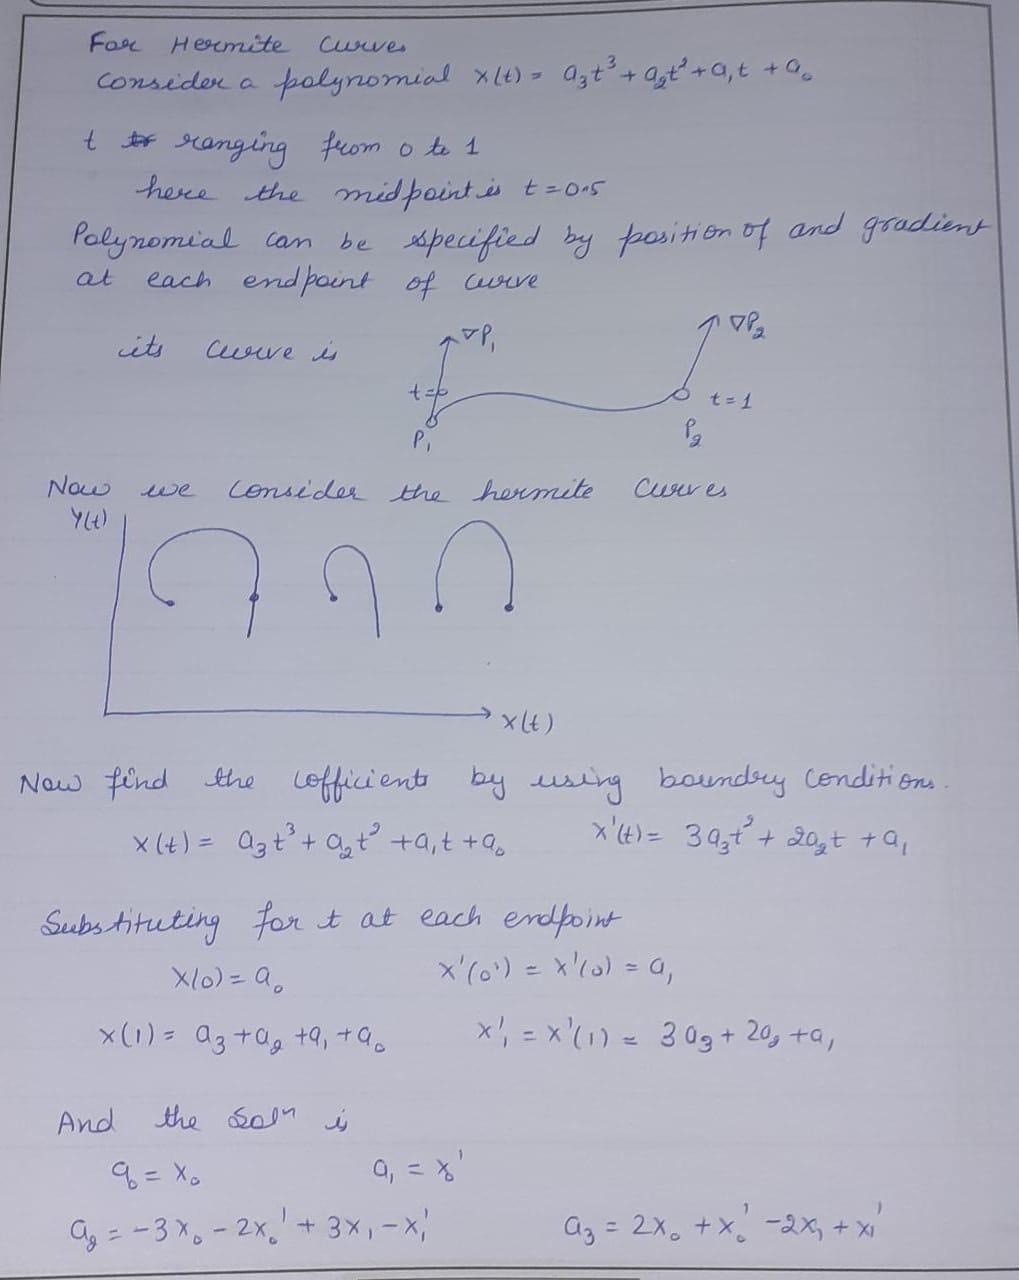 For Hermite Curves
Consider a polynomial x(t) = a₃t³ + a₂t² + a₁t + a₀
t ranging from 0 to 1
here the midpoint is t = 0.5
Polynomial can be specified by position of and gradient
at each endpoint of curve
its curve is
∇P₁
∇P₂
t=0
t=1
P₁
P₂
Now we consider the hermite curves
Y(t)
x(t)
Now find the cofficients by using boundry conditions.
x(t) = a₃t³ + a₂t² + a₁t + a₀ x'(t) = 3a₃t² + 2a₂t + a₁
Substituting for t at each endpoint
x(0) = a₀ x'(0') = x'(0) = a₁
x(1) = a₃ + a₂ + a₁ + a₀ x'₁ = x'(1) = 3a₃ + 2a₂ + a₁
And the solⁿ is
a₀ = x₀ a₁ = x₀'
a₂ = -3x₀ - 2x₀' + 3x₁ - x₁' a₃ = 2x₀ + x₀' - 2x₁ + x₁'